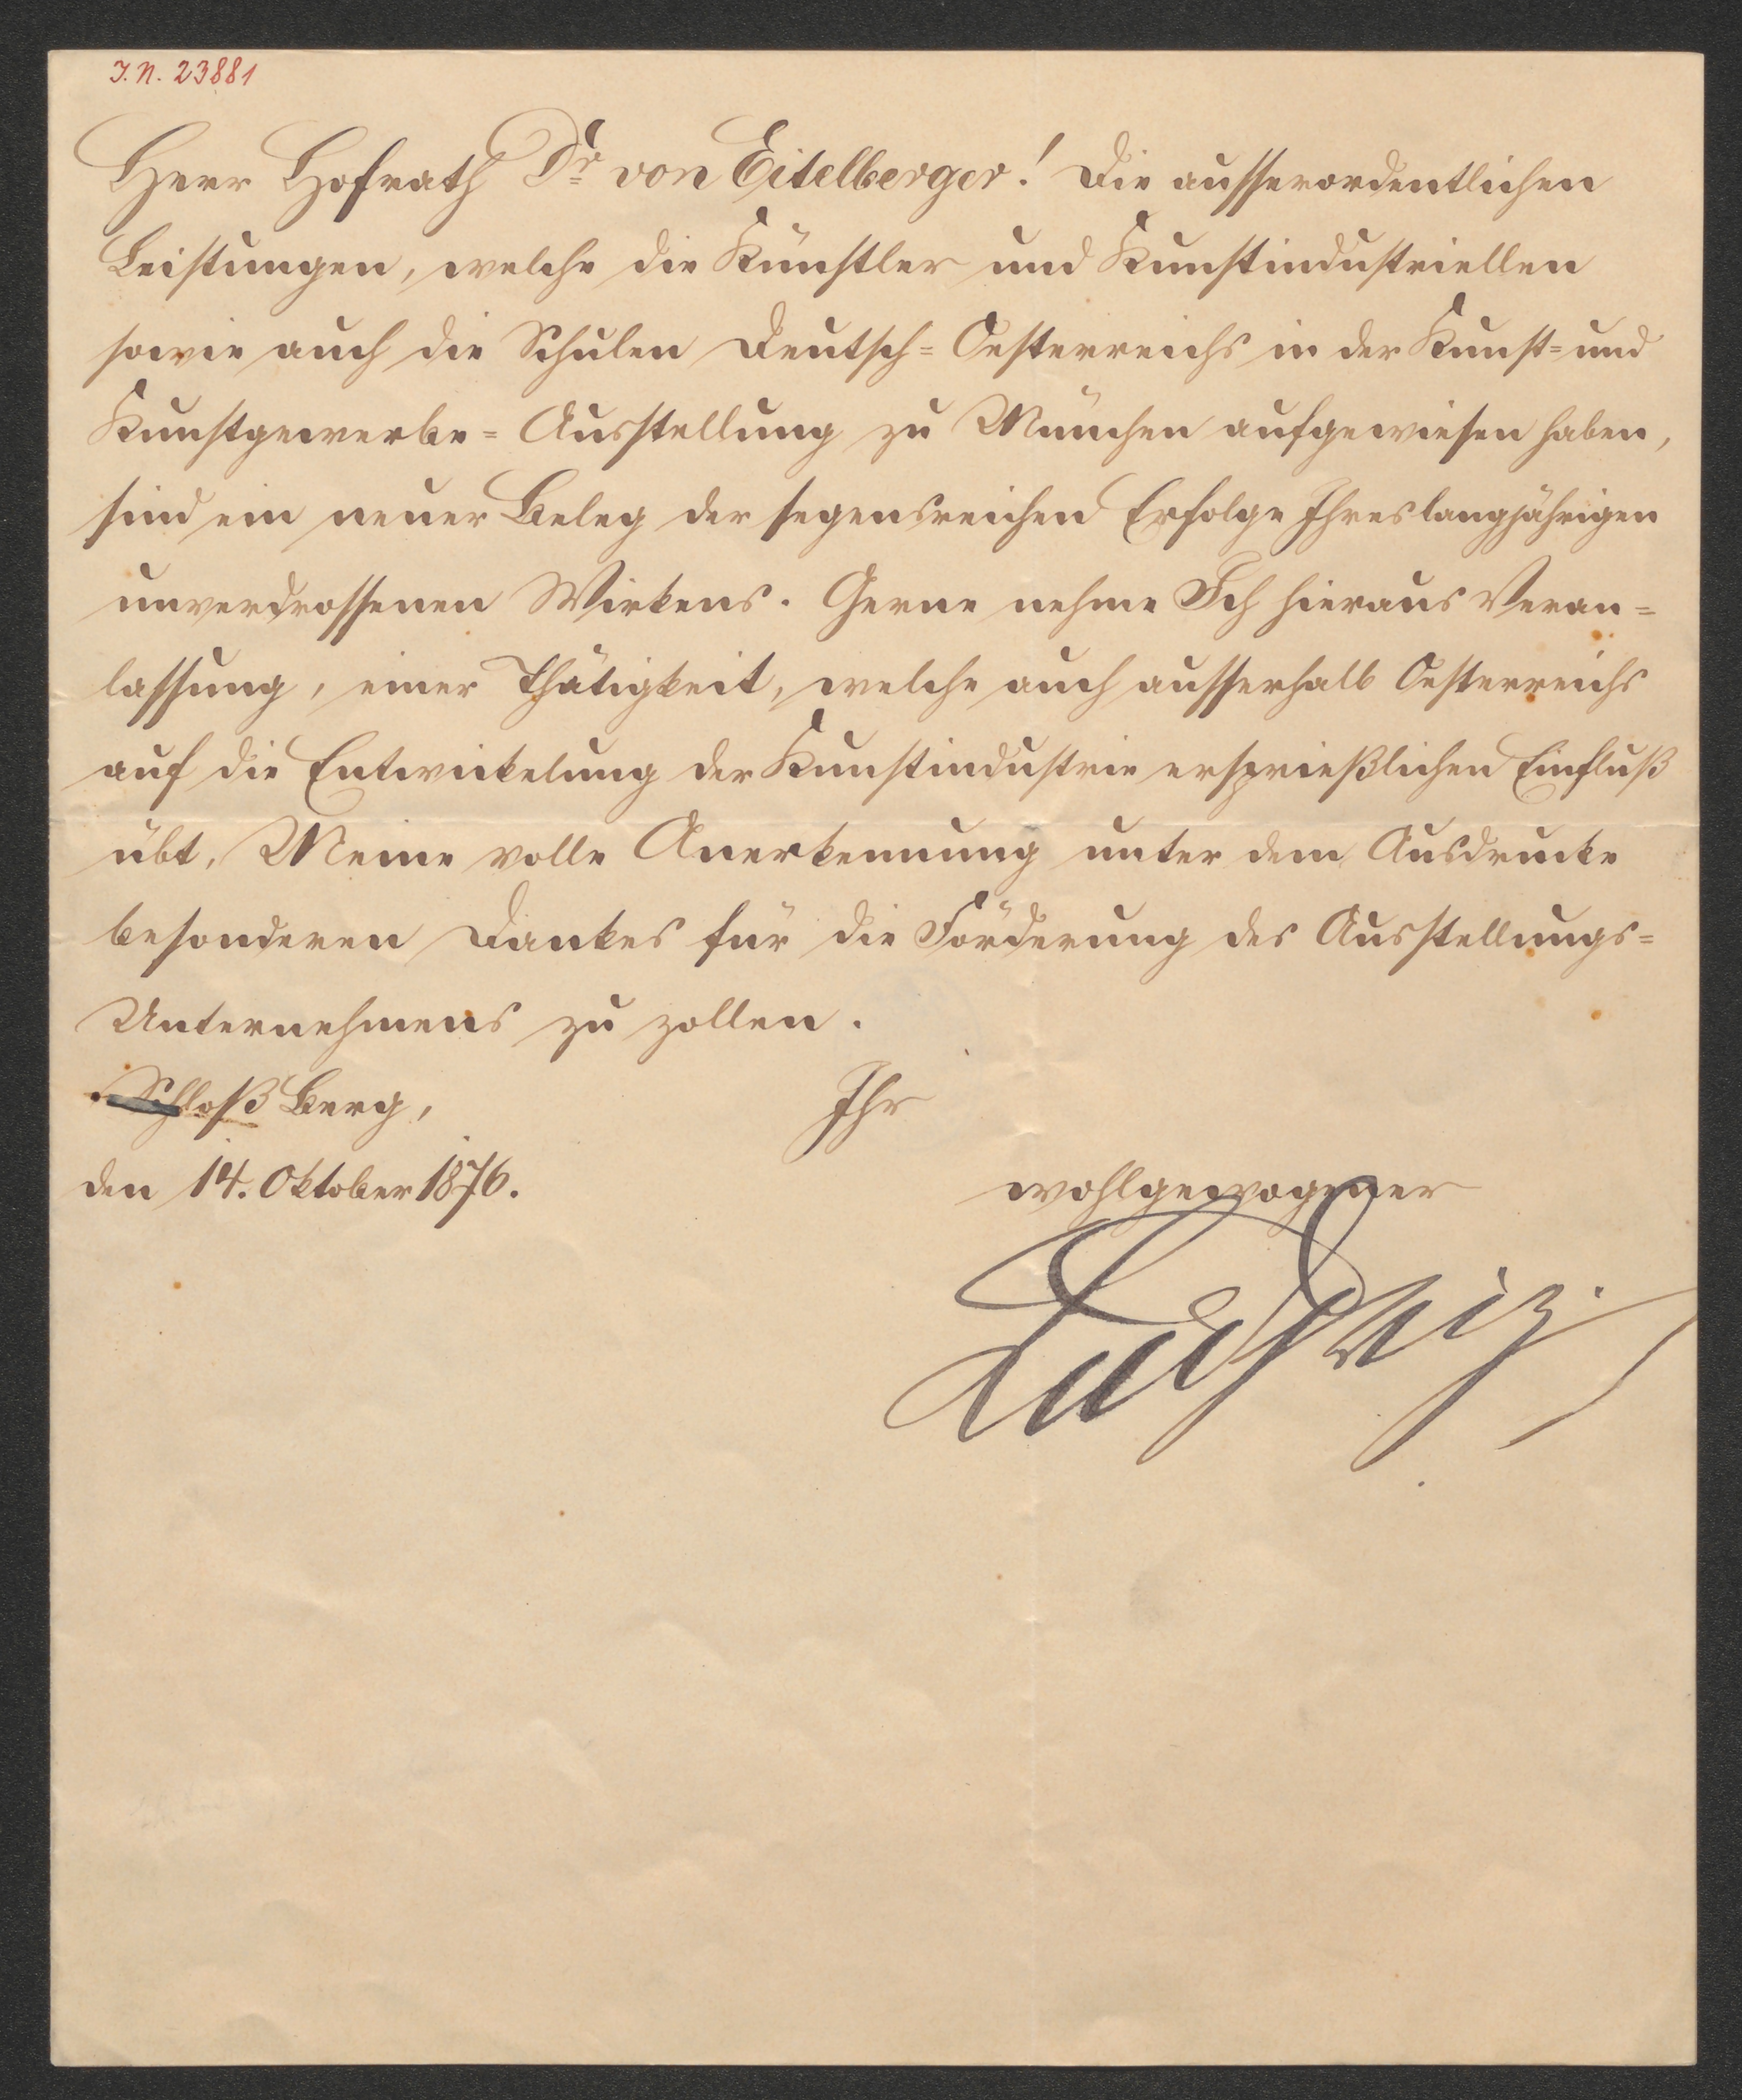 J. N. 23881
Herr Hofrath Dr von Eitelberger! Die ausserordentlichen
Leistungen, welche die Künstler und Kunstindustriellen
sowie auch die Schulen Deutsch-Oesterreichs in der Kunst- und
Kunstgewerbe-Ausstellung zu München aufgewiesen haben,
sind ein neuer Beleg der segensreichen Erfolge Ihres langjährigen
unverdrossenen Wirkens. Gerne nehme Ich hieraus Veran-
lassung, einer Thätigkeit, welche auch ausserhalb Oesterreichs
auf die Entwickelung der Kunstindustrie ersprießlichen Einfluß
übt, Meine volle Anerkennung unter dem Ausdrucke
besonderen Dankes für die Förderung des Ausstellungs-
Unternehmens zu zollen.
Schloß Berg,
den 14. Oktober 1876.
Ihr
wohlgewogener
Ludwig.